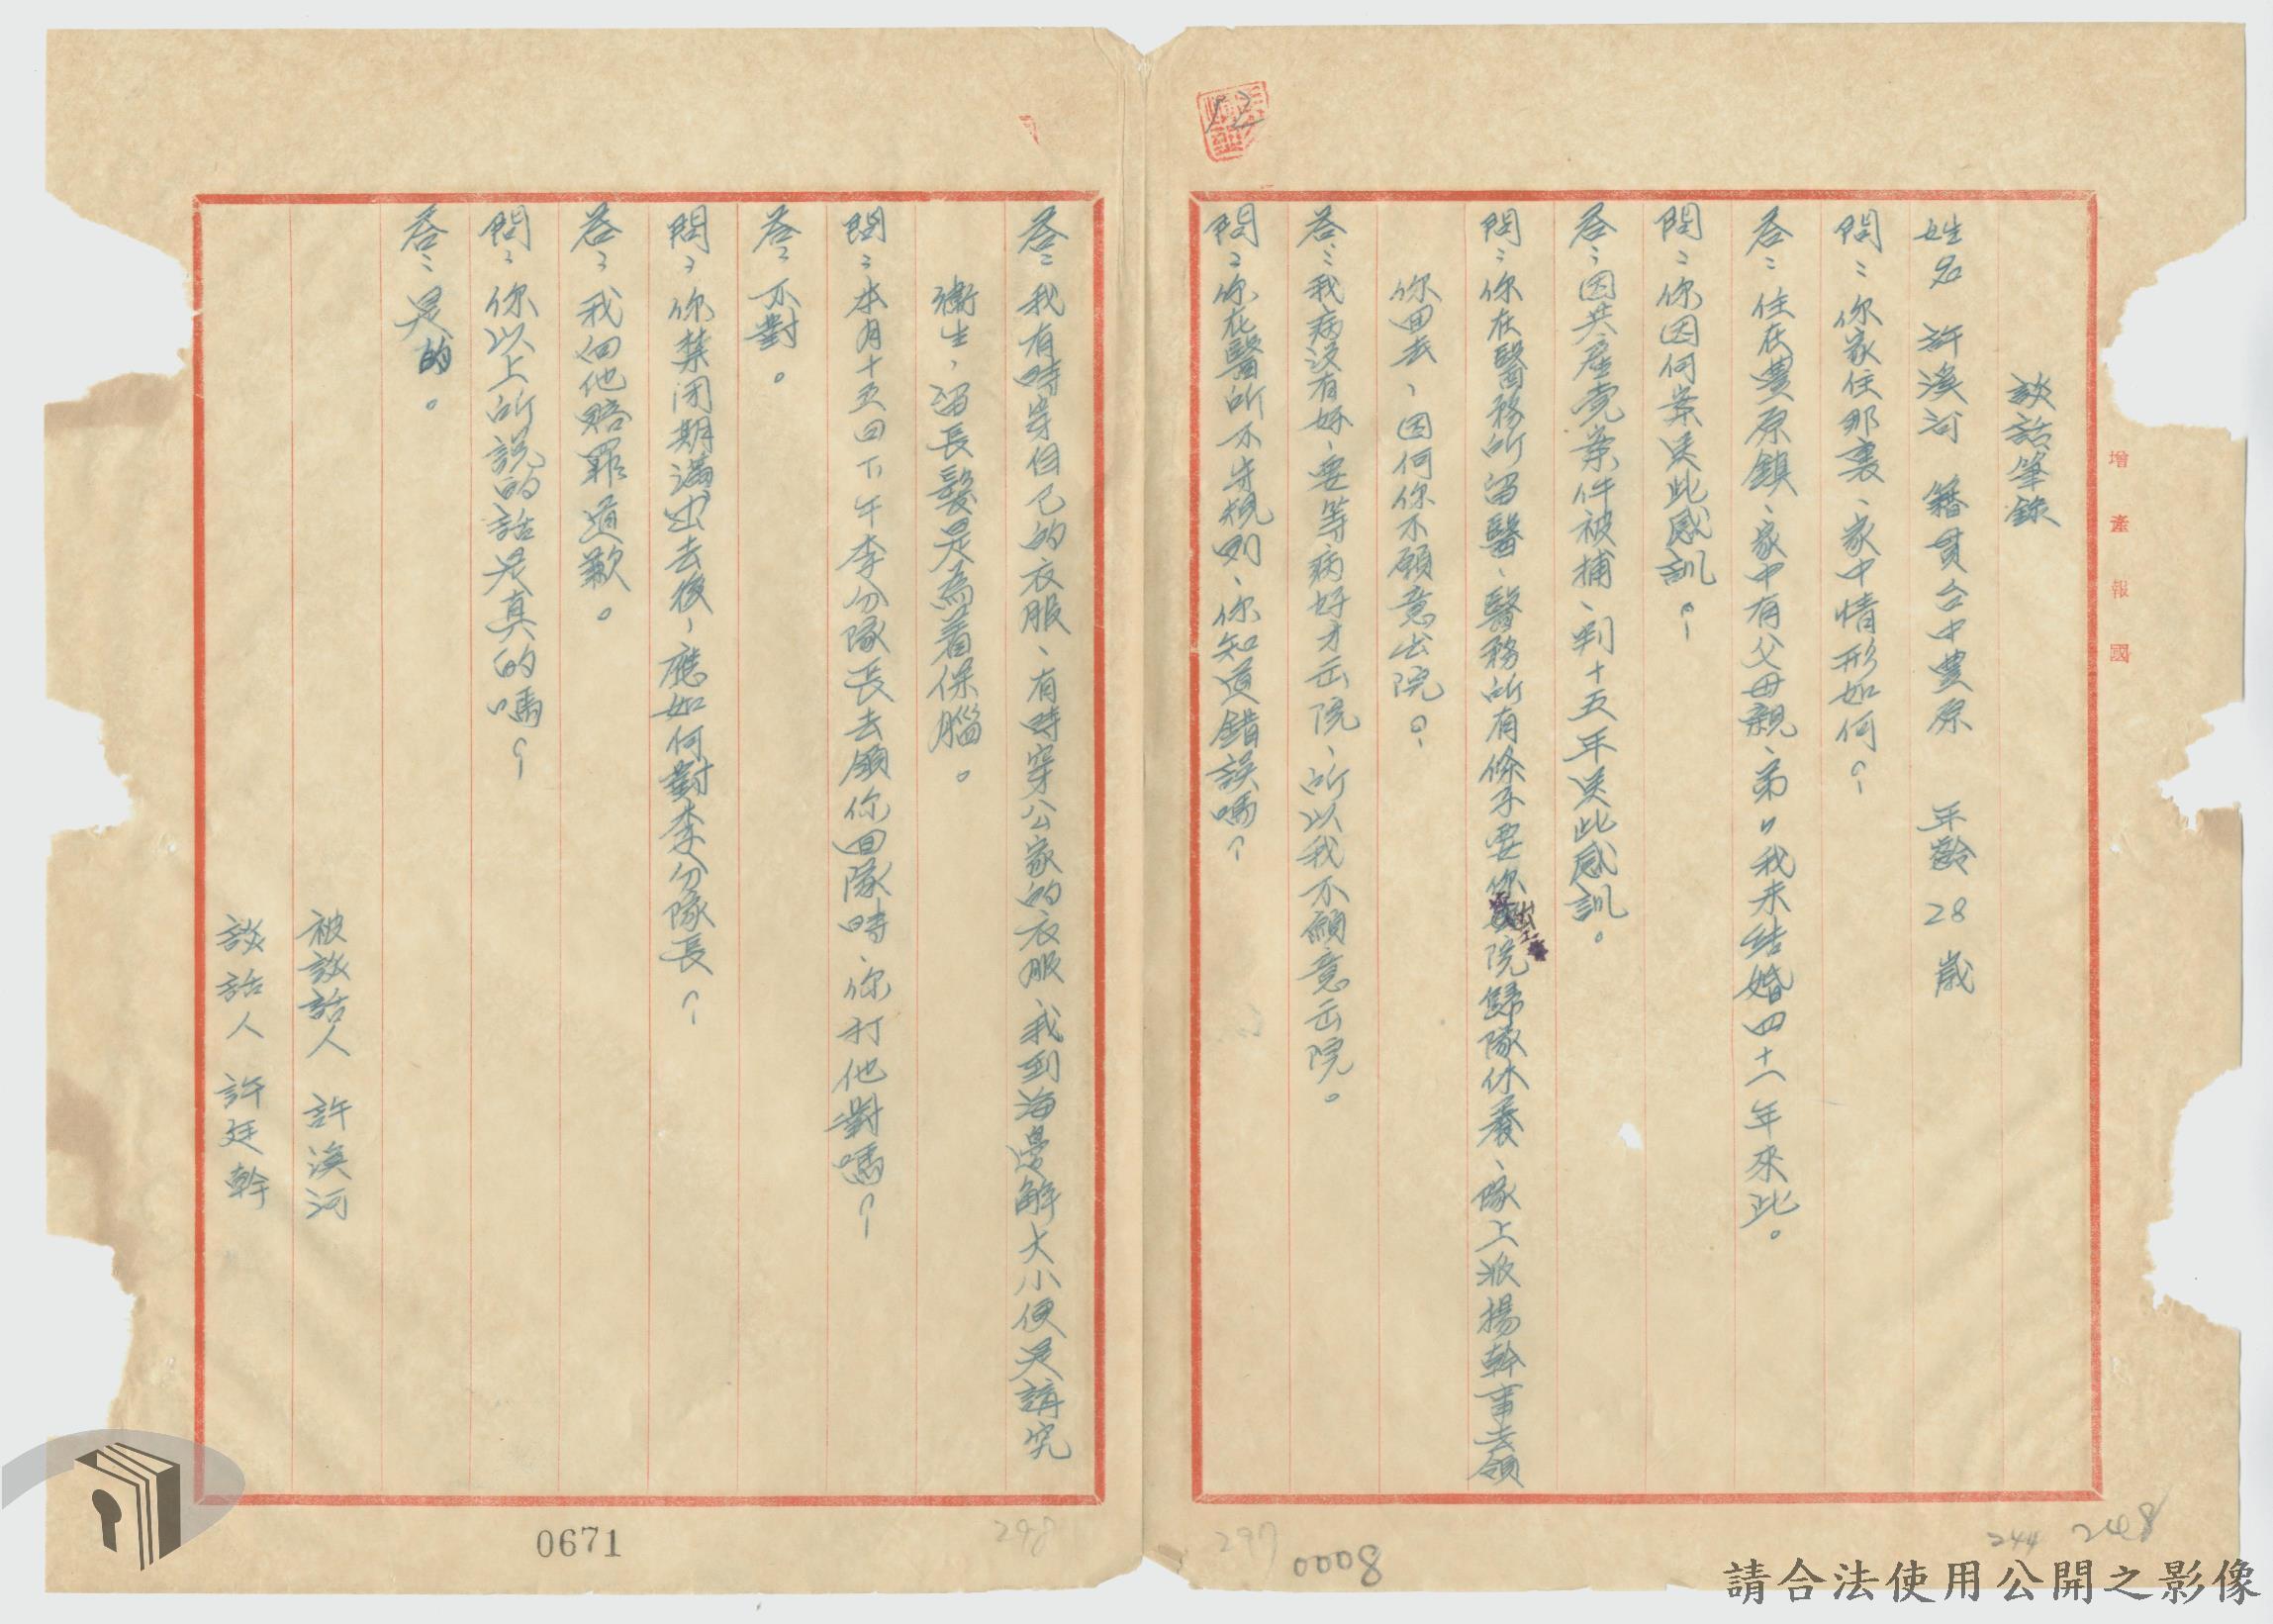 增產報國
談話筆錄
姓名 許溪河 籍貫台中豊原 年齡28歲
問：你家住那裏、家中情形如何？
答：住在豊原鎮、家中有父母親、弟〃我未結婚四十一年來此。
問：你因何案送此感訓？
答：因共產党案件被捕、判十五年送此感訓。
問：你在醫務所留醫、醫務所有條子要你出院歸隊休養、隊上派楊幹事去領
你回去、因何你不願意出院？
答：我病没有好、要等病好才出院、所以我不願意出院。
問：你在醫所不守規則、你知道錯誤嗎？
答：我有時穿自己的衣服、有時穿公家的衣服、我到海邊解大小便是講究
衛生，留長髮是為着保腦。
問：本月十五日下午李分隊長去領你回隊時、你打他對嗎？
答：不對。
問：你禁闭期滿出去後，應如何對李分隊長？
答：我向他賠罪道歉。
問：你以上所説的話是真的嗎？
答：是的。
被談話人 許溪河
談話人 許廷幹
0671
298
297
0008
244
248
請合法使用公開之影像